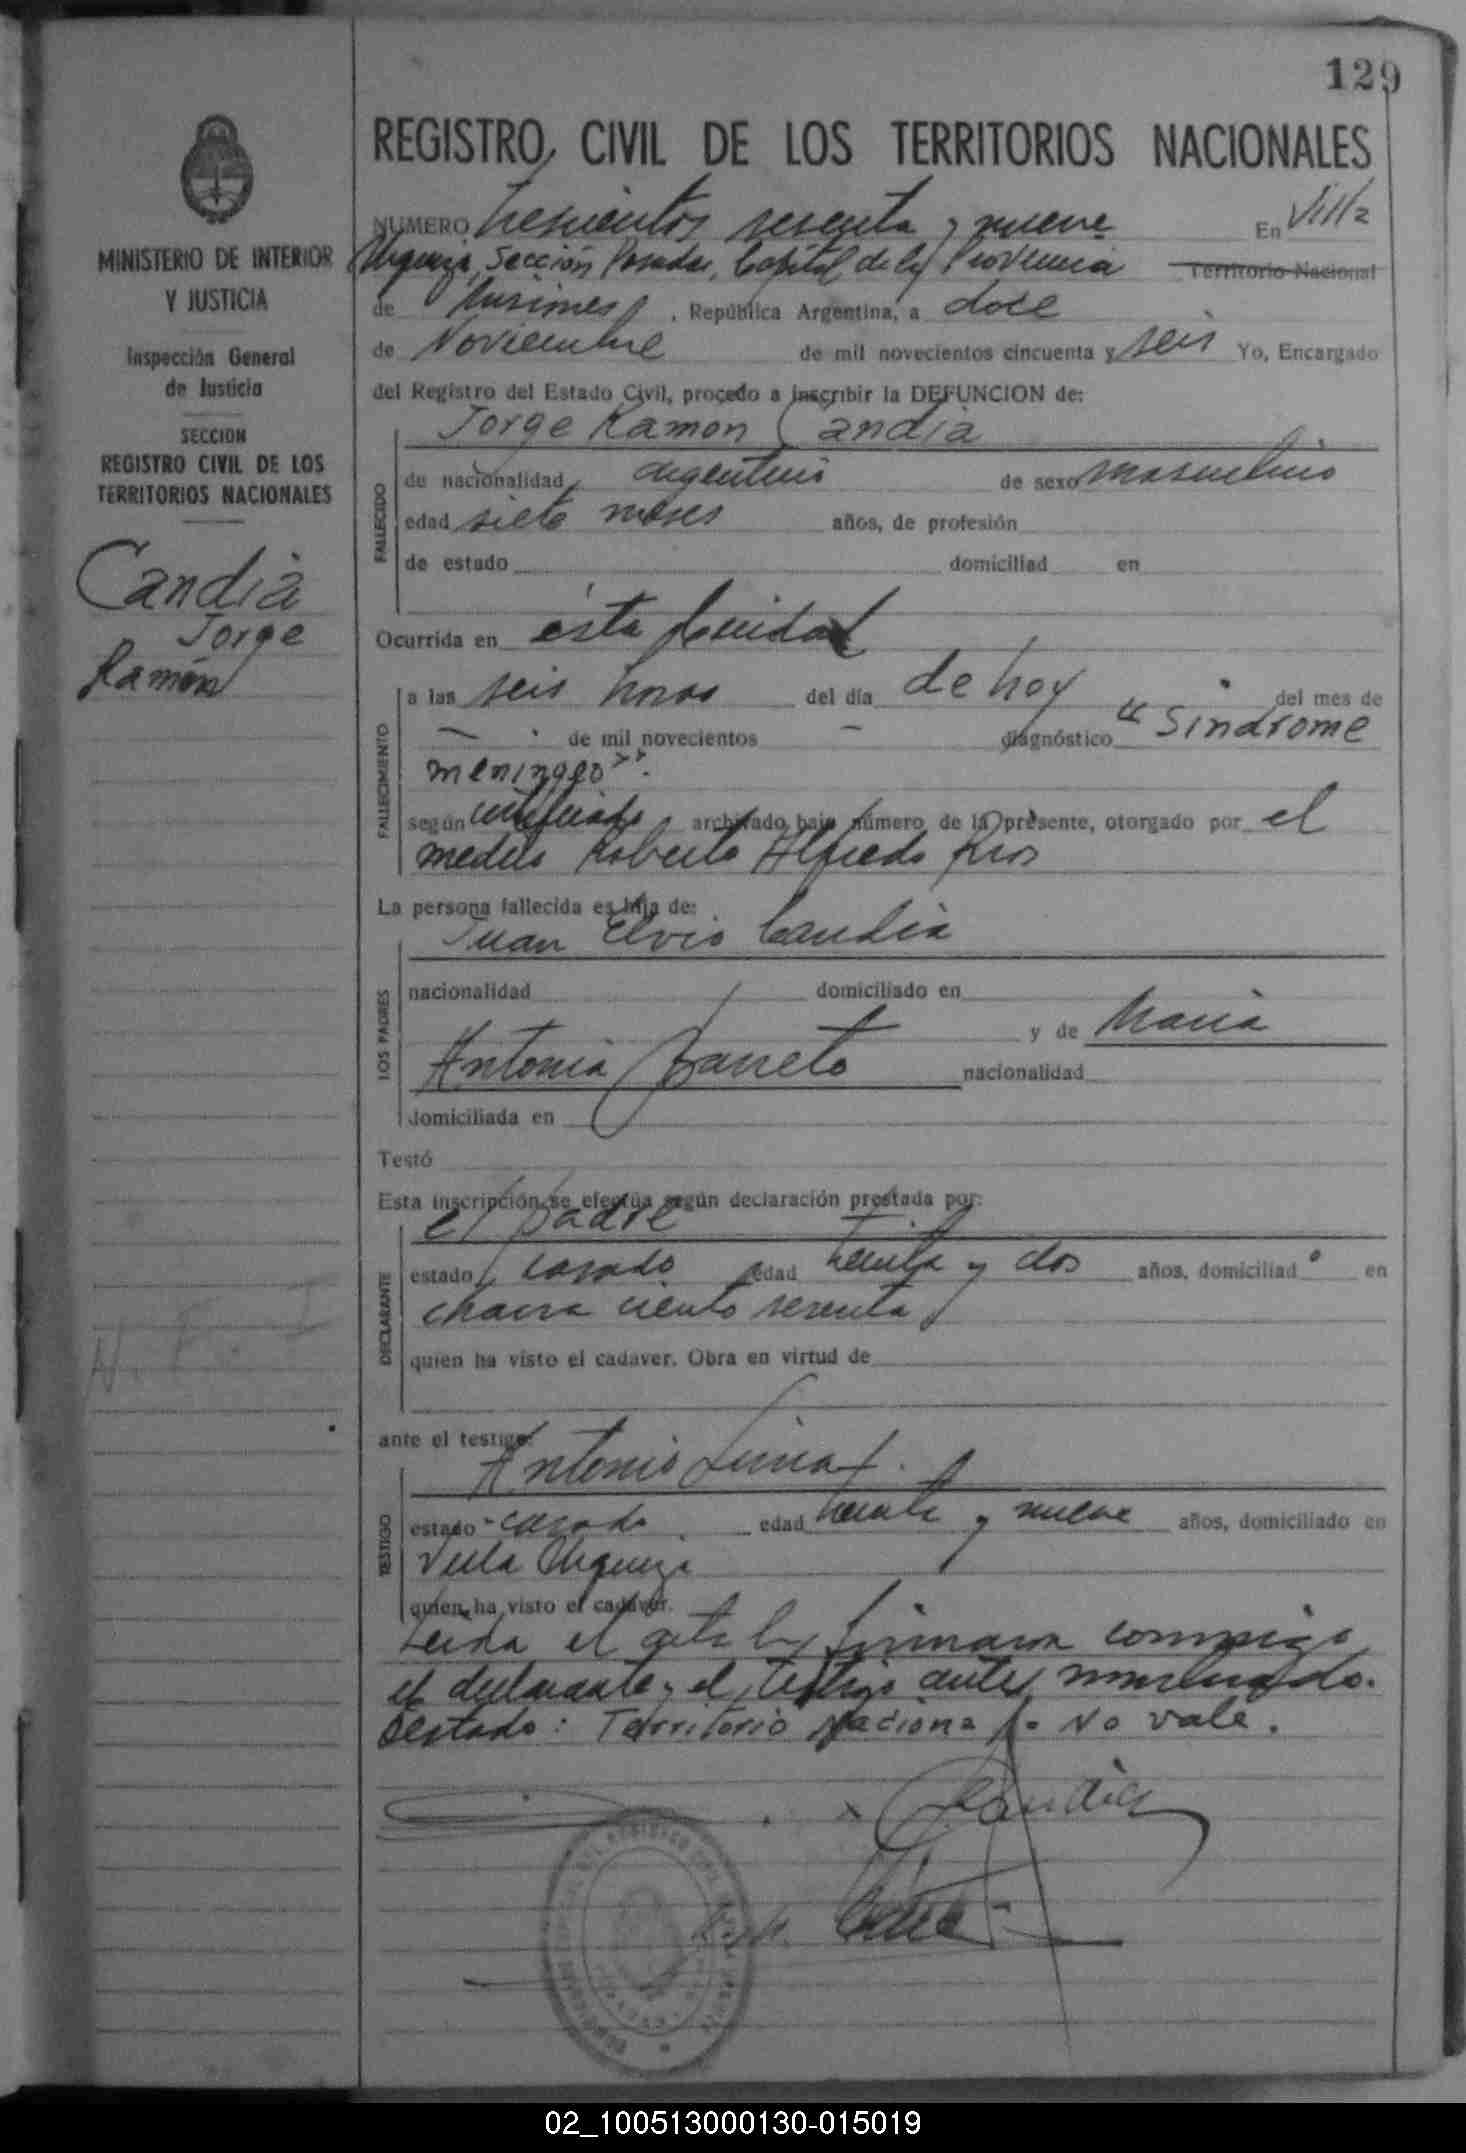 129
REGISTRO CIVIL DE LOS TERRITORIOS NACIONALES
MINISTERIO DE INTERIOR
Y JUSTICIA
Inspección General
de Justicia
SECCION
REGISTRO CIVIL DE LOS
TERRITORIOS NACIONALES
Candia
Jorge
Ramón
N. F. I
NUMERO trescientos sesenta y nueve En Villa
Urquiza, Sección Posadas, Capital de la Provincia Territorio Nacional
de Misiones, República Argentina, a doce
de Noviembre de mil novecientos cincuenta y seis Yo, Encargado
del Registro del Estado Civil, procedo a inscribir la DEFUNCION de:
Jorge Ramon Candia
FALLECIDO
de nacionalidad argentino de sexo masculino
edad siete meses años, de profesión
de estado domiciliad en
Ocurrida en ésta ciudad
FALLECIMIENTO
a las seis horas del día de hoy del mes de
— de mil novecientos — diagnóstico "Sindrome
meningeo".
según certificado archivado bajo número de la presente, otorgado por el
medico Roberto Alfredo Rios
La persona fallecida es hija de:
Juan Elvio Candia
LOS PADRES
nacionalidad domiciliado en
y de Maria
Antonia Barreto nacionalidad
domiciliada en
Testó
Esta inscripción se efectúa según declaración prestada por:
el padre
DECLARANTE
estado casado edad treinta y dos años, domiciliado en
chacra ciento sesenta
quien ha visto el cadaver. Obra en virtud de
ante el testigo:
Antonio
TESTIGO
estado casado edad treinta y nueve años, domiciliado en
Villa Urquiza
quien ha visto el cadaver.
Leida el acta la firmaron conmigo
el declarante y el testigo antes nombrado.
Testado: Territorio Nacional. No vale.
Candia
02_100513000130-015019